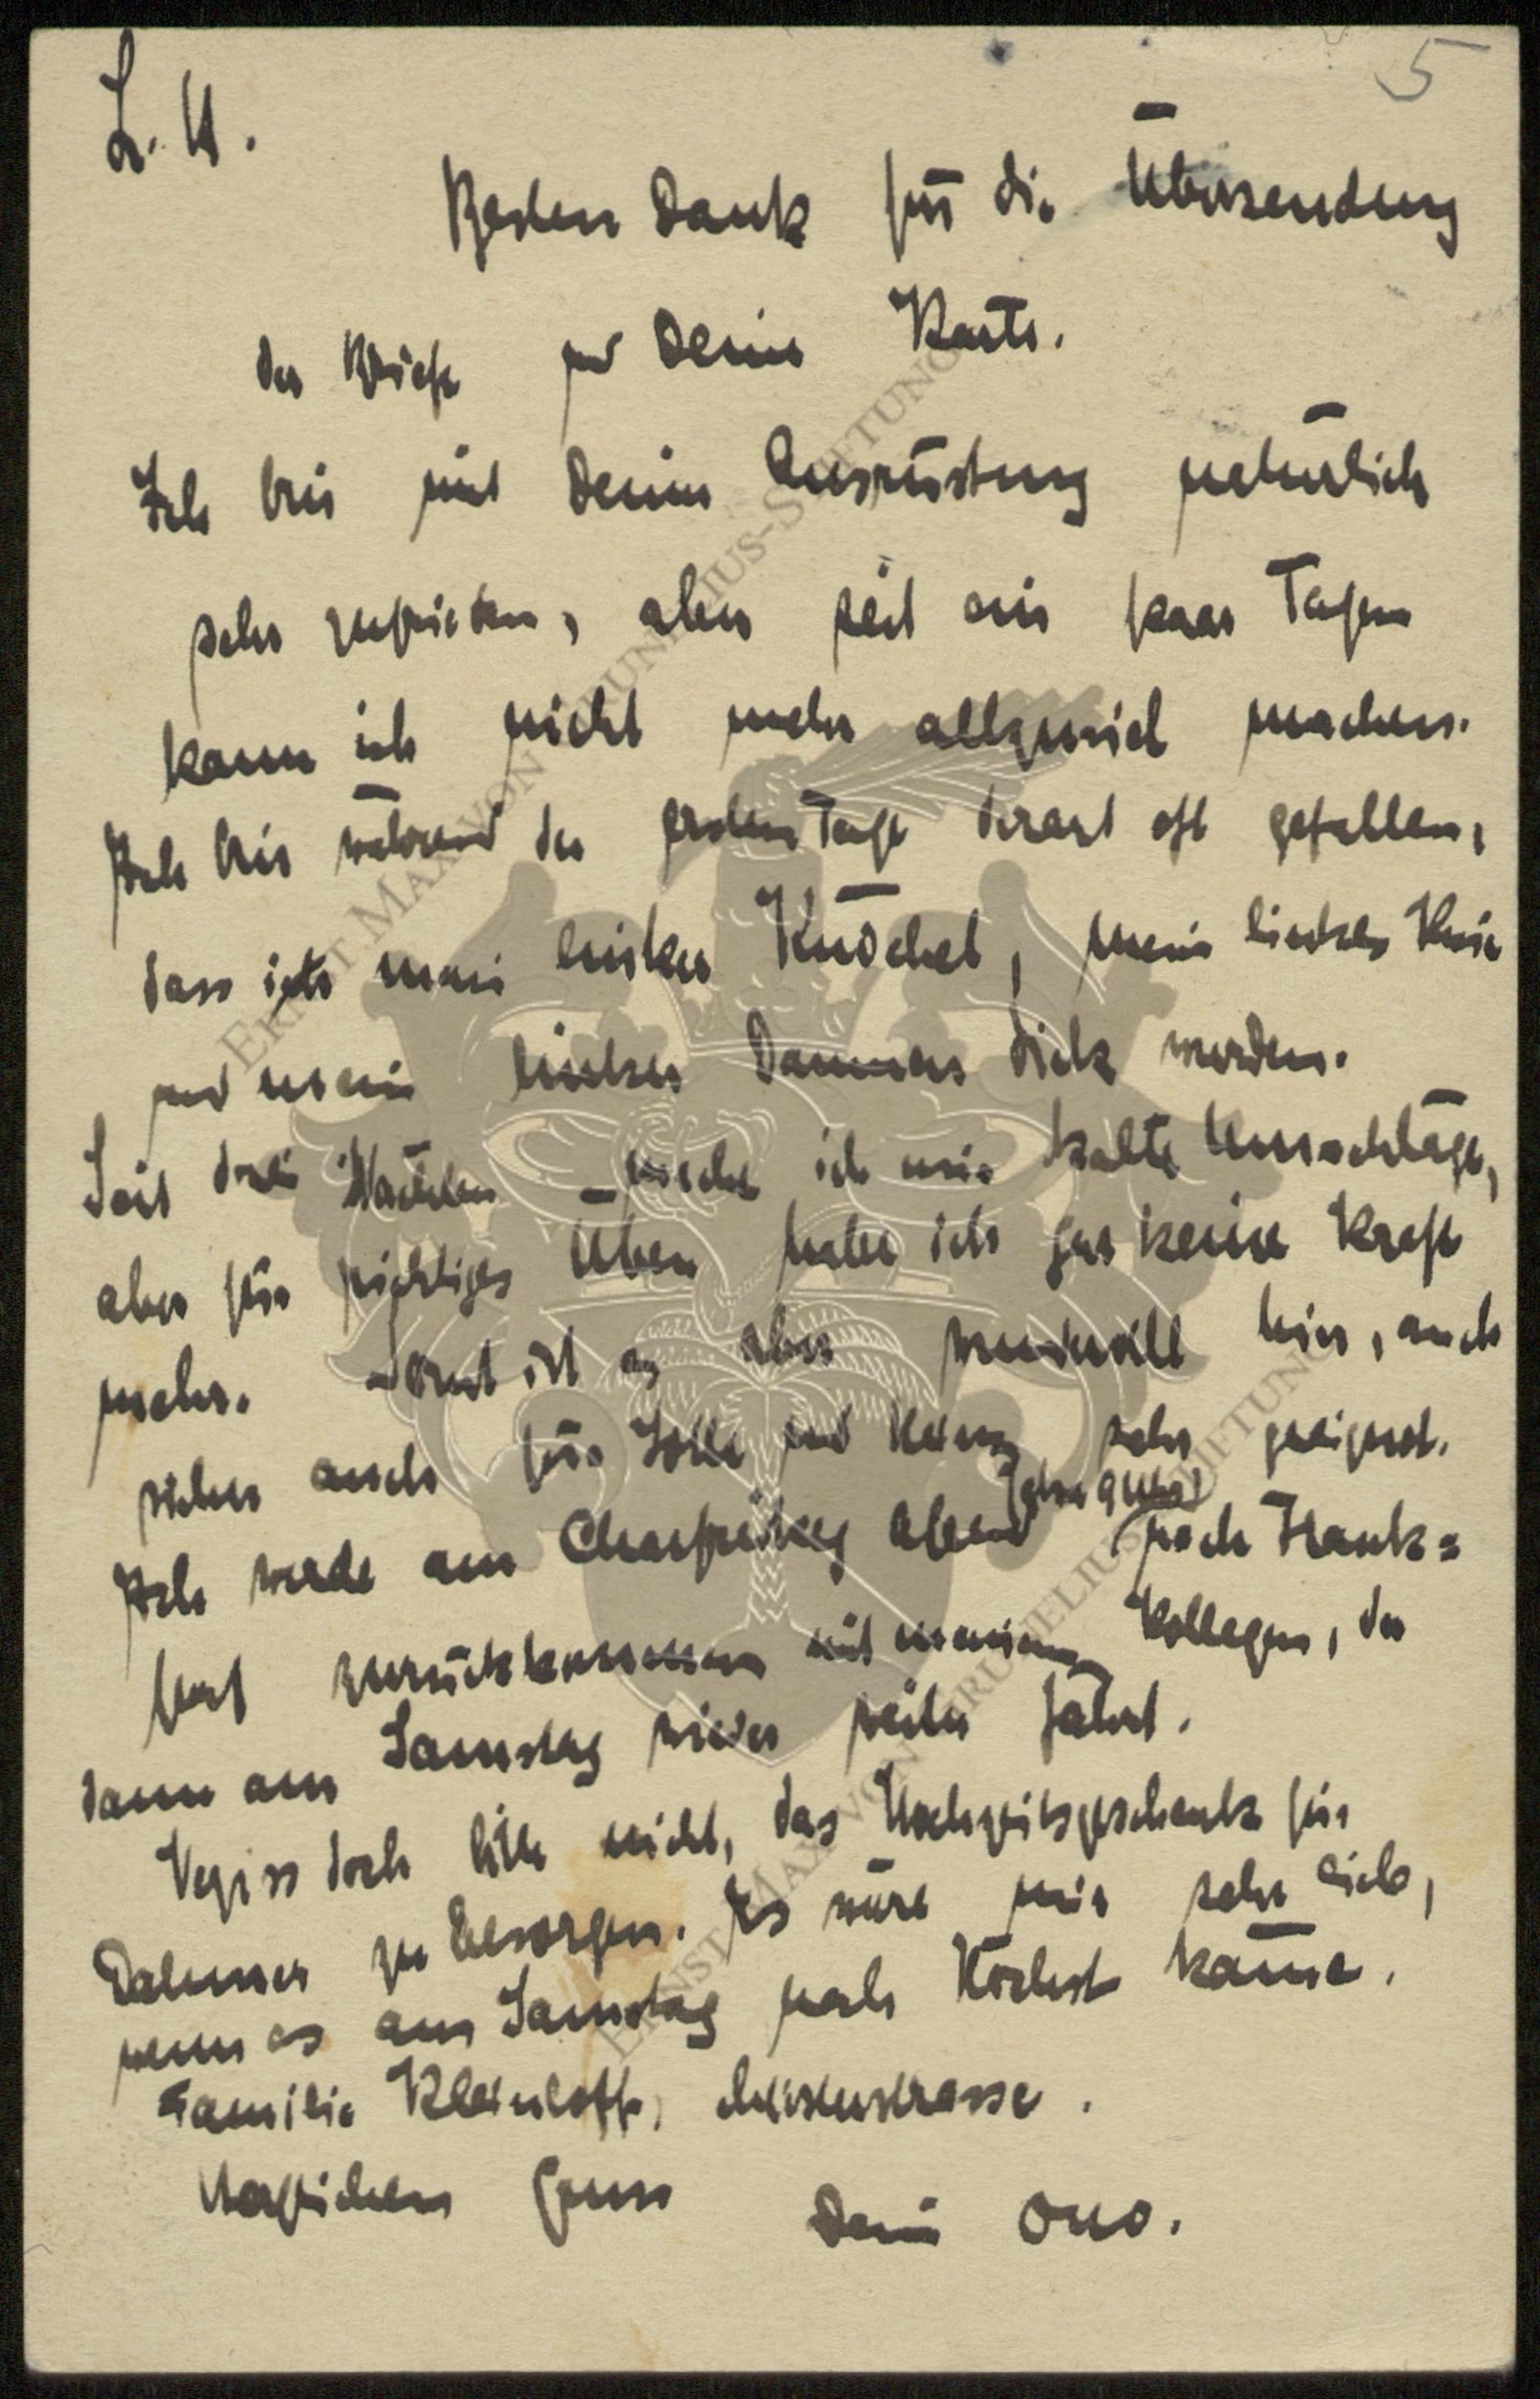 5
L. U.
Besten Dank für die Übersendung
der Briefe und Deine Karte.
Ich bin mit Deiner Ausrüstung natürlich
sehr zufrieden, aber seit ein paar Tagen
kann ich nicht mehr allzuviel machen.
Ich bin während der ersten Tage derart oft gefallen,
dass jetzt mein linker Knöchel, mein linkes Knie
und mein linker Daumen dick wurden.
Seit drei Nächten mache ich mir kalte Umschläge,
aber für richtiges Üben habe ich gar keine Kraft
mehr. Sonst ist es aber wundervoll hier, auch
sicher auch für und sehr geeignet.
Ich werde am Charfreitag Abend nach Frank=
furt zurückkommen mit meinem Kollegen, der
dann am Samstag wieder weiter fährt.
Vergiss doch bitte nicht, das Hochzeitsgeschenk für
Dahmer zu besorgen. Es wäre mir sehr lieb,
wenn es am Samstag nach Höchst käme.
Familie
Herzlichen Gruss Dein Otto.
ERNST MAX VON GRUNELIUS-STIFTUNG
ERNST MAX VON GRUNELIUS-STIFTUNG